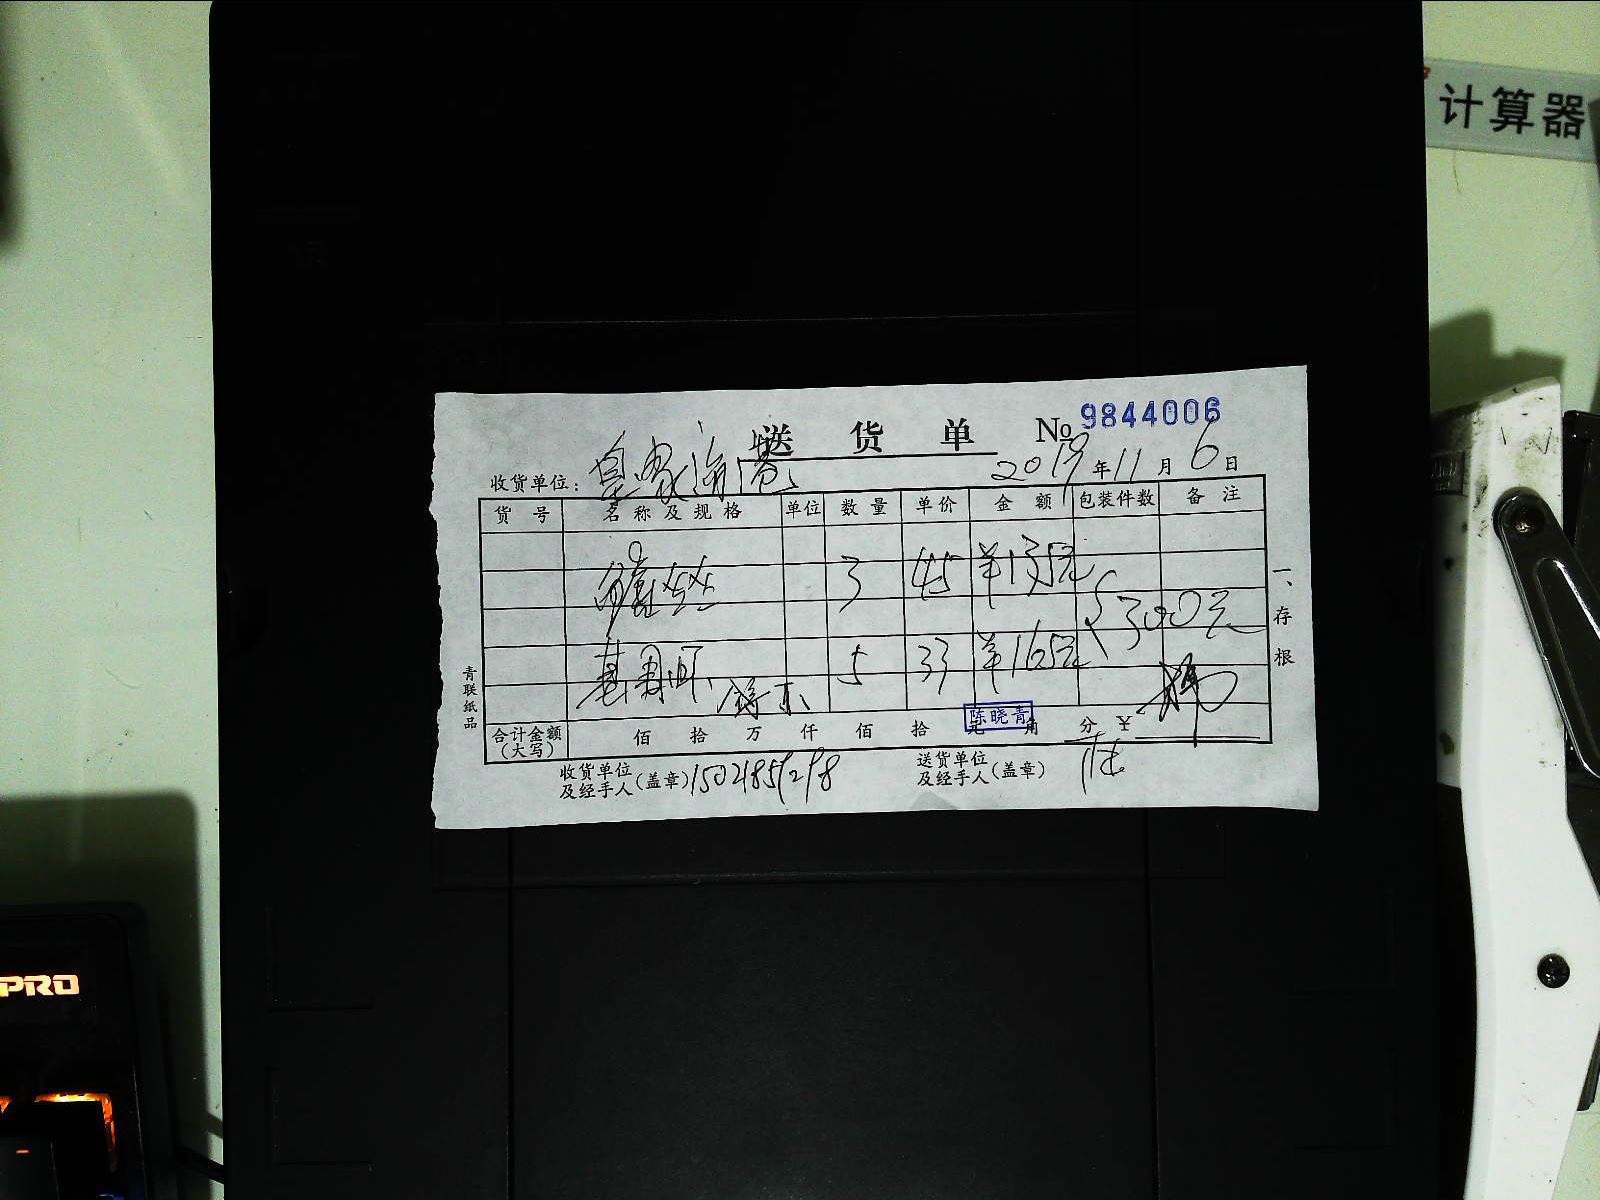 计算器
送货单 № 9844006
收货单位：皇家海港 2019年11月6日
货号 名称及规格 单位 数量 单价 金额 包装件数 备注
3 45 ¥135元
300元
基围虾 5 33 ¥165元
合计金额（大写） 佰 拾 万 仟 佰 拾 元 角 分 ¥
陈晓青
收货单位及经手人（盖章）
送货单位及经手人（盖章）
一、存根
青联纸品
PRO